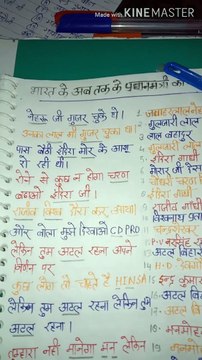 Made with KINEMASTER
भारत के अब तक के प्रधानमंत्री का
नेहरू जी गुजर चुके थे।
उनका लाल भी गुजर चुका था।
पास बैठी इंदिरा मोर के आंसू
रो रही थी।
रोने से कुछ न होगा चरण
बढ़ाओ इंदिरा जी।
राजीव विश्व
और बोला मुझे दिखाओ CD PRD
लेकिन तुम अटल रहना अपने
निर्णय पर
कुछ लोग तो चाहते है HINSA
लेकिन तुम अटल रहना लेकिन तुम
अटल रहना।
तुम्हारा नहीं मानेगा मन लेकिन
1. जवाहरलाल
2. गुलजारी लाल
3. लाल बहादुर
4. गुलजारी लाल
5. इंदिरा गांधी
6. मोरारजी
7. चरण
8. इंदिरा गांधी
9. राजीव गांधी
10. विश्वनाथ प्रता
11. चन्द्रशेखर
12. P.V नरसिंह
13. अटल बिहारी
14. H.D
15. इन्द्र कुमार
16. अटल बि
17. अटल बिहा
18. मनमोह
19. मनमोह